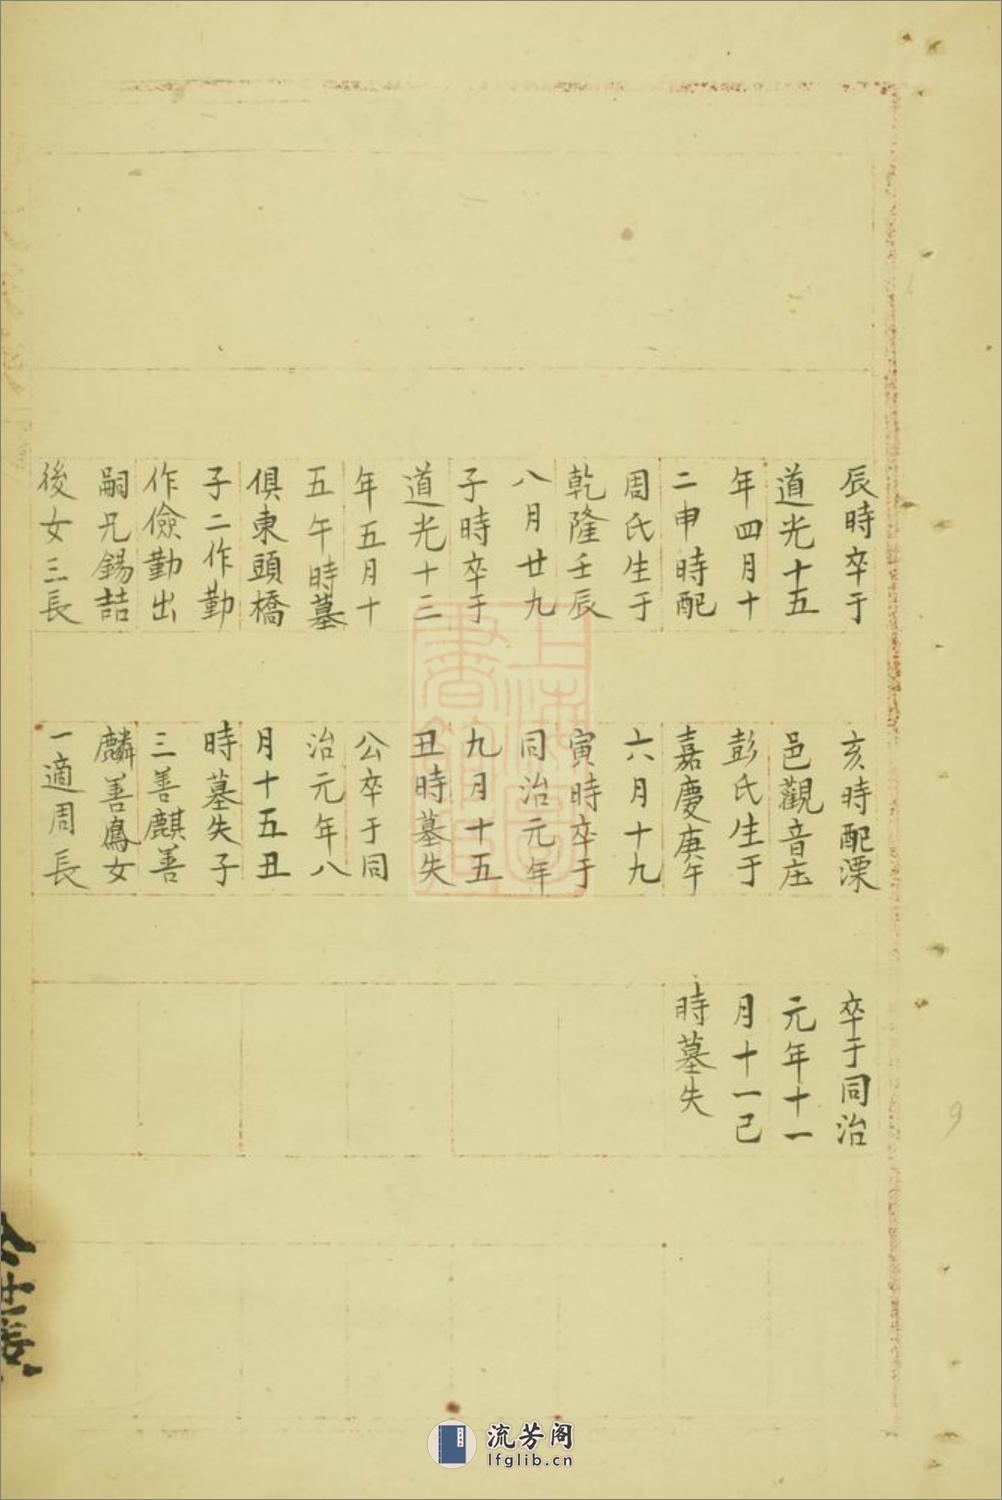 辰時卒于
道光十五
年四月十
二申時配
周氏生于
乾隆壬辰
八月廿九
子時卒于
道光十二
年五月十
五午時墓
俱東頭橋
子二作勤
作儉勤出
嗣兄錫喆
後女三長
亥時配溧
邑觀音庄
彭氏生于
嘉慶庚午
六月十九
寅時卒于
同治元年
九月十五
丑時墓失
公卒于同
治元年八
月十五丑
時墓失子
三善麒善
麟善鳳女
一適周長
卒于同治
元年十一
月十一巳
時墓失
上海圖
書館藏
9
流芳阁
lfglib.cn